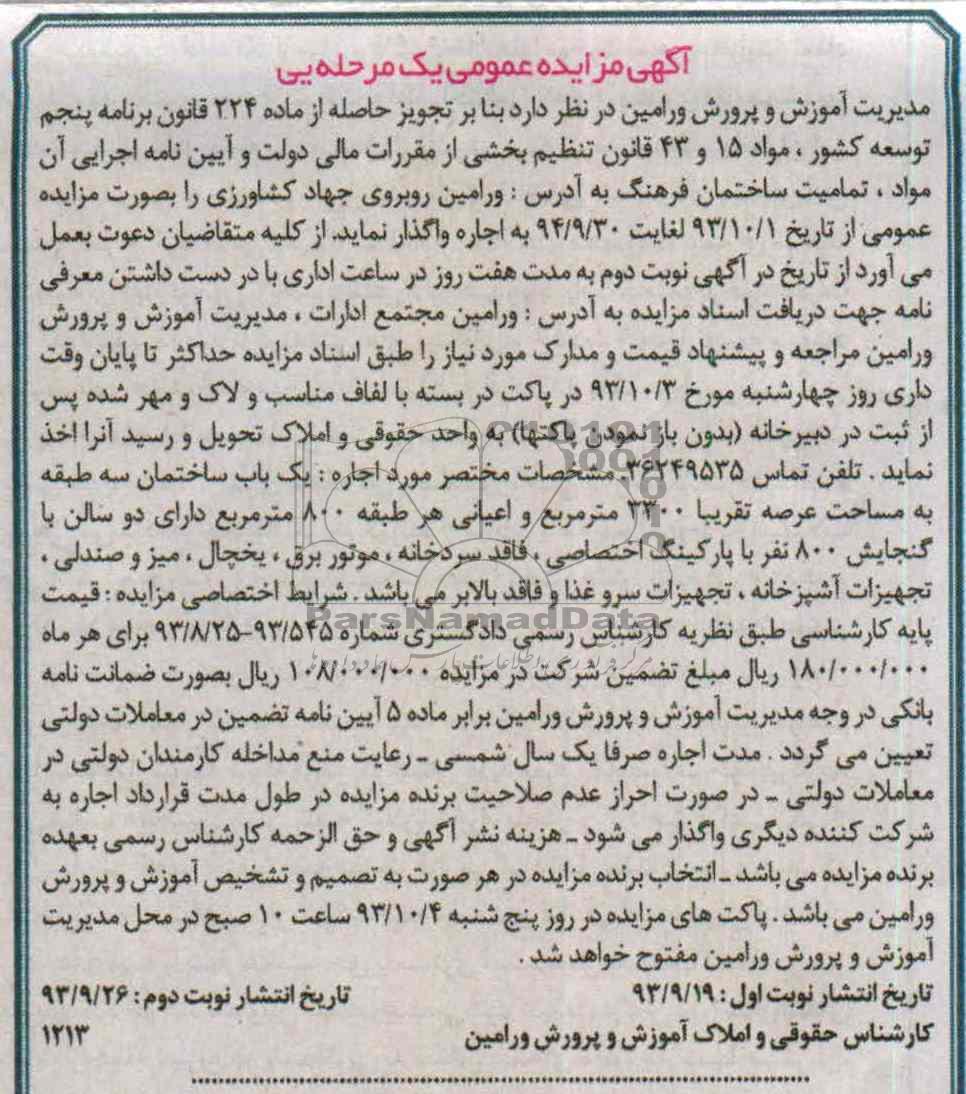 آگهی مزایده عمومی یک مرحله یی
مدیریت آموزش و پرورش ورامین در نظر دارد بنا بر تجویز حاصله از ماده ۲۲۴ قانون برنامه پنجم
توسعه کشور ، مواد ۱۵ و ۴۳ قانون تنظیم بخشی از مقررات مالی دولت و آیین نامه اجرایی آن
مواد ، تمامیت ساختمان فرهنگ به آدرس : ورامین روبروی جهاد کشاورزی را بصورت مزایده
عمومی از تاریخ ۹۳/۱۰/۱ لغایت ۹۴/۹/۳۰ به اجاره واگذار نماید. از کلیه متقاضیان دعوت بعمل
می آورد از تاریخ در آگهی نوبت دوم به مدت هفت روز در ساعت اداری با در دست داشتن معرفی
نامه جهت دریافت اسناد مزایده به آدرس : ورامین مجتمع ادارات ، مدیریت آموزش و پرورش
ورامین مراجعه و پیشنهاد قیمت و مدارک مورد نیاز را طبق اسناد مزایده حداکثر تا پایان وقت
داری روز چهارشنبه مورخ ۹۳/۱۰/۳ در پاکت در بسته با لفاف مناسب و لاک و مهر شده پس
از ثبت در دبیرخانه (بدون باز نمودن پاکتها) به واحد حقوقی و املاک تحویل و رسید آنرا اخذ
نماید . تلفن تماس ۳۶۲۴۹۵۳۵. مشخصات مختصر مورد اجاره : یک باب ساختمان سه طبقه
به مساحت عرصه تقریبا ۳۳۰۰ مترمربع و اعیانی هر طبقه ۸۰۰ مترمربع دارای دو سالن با
گنجایش ۸۰۰ نفر با پارکینگ اختصاصی ، فاقد سردخانه ، موتور برق ، یخچال ، میز و صندلی ،
تجهیزات آشپزخانه ، تجهیزات سرو غذا و فاقد بالابر می باشد . شرایط اختصاصی مزایده : قیمت
ParsNamadData
پایه کارشناسی طبق نظریه کارشناس رسمی دادگستری شماره ۹۳/۵۴۵-۹۳/۸/۲۵ برای هر ماه
۱۸۰/۰۰۰/۰۰۰ ریال مبلغ تضمین شرکت در مزایده ۱۰۸/۰۰۰/۰۰۰ ریال بصورت ضمانت نامه
بانکی در وجه مدیریت آموزش و پرورش ورامین برابر ماده ۵ آیین نامه تضمین در معاملات دولتی
تعیین می گردد . مدت اجاره صرفا یک سال شمسی ـ رعایت منع مداخله کارمندان دولتی در
معاملات دولتی ـ در صورت احراز عدم صلاحیت برنده مزایده در طول مدت قرارداد اجاره به
شرکت کننده دیگری واگذار می شود ـ هزینه نشر آگهی و حق الزحمه کارشناس رسمی بعهده
برنده مزایده می باشد ـ انتخاب برنده مزایده در هر صورت به تصمیم و تشخیص آموزش و پرورش
ورامین می باشد . پاکت های مزایده در روز پنج شنبه ۹۳/۱۰/۴ ساعت ۱۰ صبح در محل مدیریت
آموزش و پرورش ورامین مفتوح خواهد شد .
تاریخ انتشار نوبت اول : ۹۳/۹/۱۹ تاریخ انتشار نوبت دوم : ۹۳/۹/۲۶
کارشناس حقوقی و املاک آموزش و پرورش ورامین ۱۲۱۳